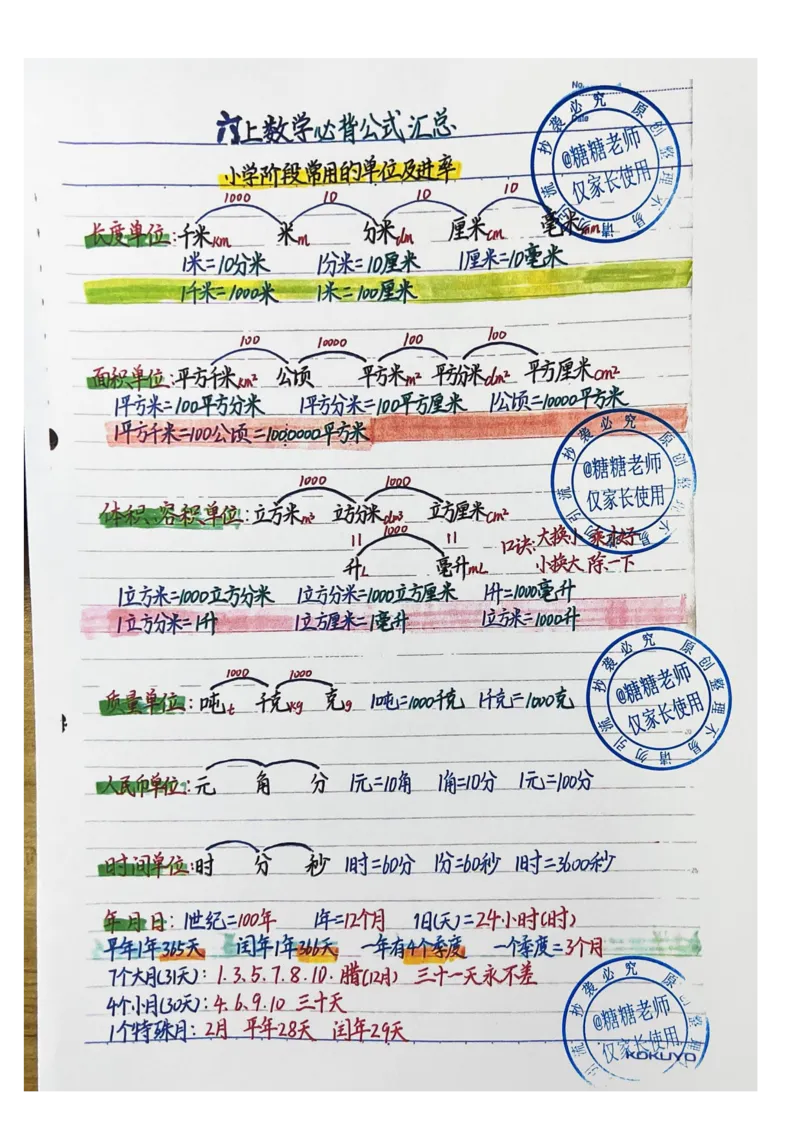 No.
Date
六上数学必背公式汇总
小学阶段常用的单位及进率
1000 10 10 10
长度单位:千米km 米m 分米dm 厘米cm 毫米mm
1米=10分米 1分米=10厘米 1厘米=10毫米
1千米=1000米 1米=100厘米
100 10000 100 100
面积单位:平方千米km² 公顷 平方米m² 平方分米dm² 平方厘米cm²
1平方米=100平方分米 1平方分米=100平方厘米 1公顷=10000平方米
1平方千米=100公顷=1000000平方米
1000 1000
体积、容积单位:立方米m³ 立方分米dm³ 立方厘米cm²
1000
口诀:大换小,乘才好
升L 毫升mL 小换大,除一下
1立方米=1000立方分米 1立方分米=1000立方厘米 1升=1000毫升
1立方分米=1升 1立方厘米=1毫升 1立方米=1000升
1000 1000
质量单位:吨t 千克kg 克g 1吨=1000千克 1千克=1000克
人民币单位:元 角 分 1元=10角 1角=10分 1元=100分
时间单位:时 分 秒 1时=60分 1分=60秒 1时=3600秒
年月日:1世纪=100年 1年=12个月 1日(天)=24小时(时)
平年1年365天 闰年1年366天 一年有4个季度 一个季度=3个月
7个大月(31天):1.3.5.7.8.10.腊(12月) 三十一天永不差
4个小月(30天):4.6.9.10 三十天
1个特殊月:2月 平年28天 闰年29天
KOKUYO
原创整理不易 请勿引流 抄袭必究
@糖糖老师
仅家长使用
原创整理不易 请勿引流 抄袭必究
@糖糖老师
仅家长使用
原创整理不易 请勿引流 抄袭必究
@糖糖老师
仅家长使用
@糖糖老师
仅家长使用